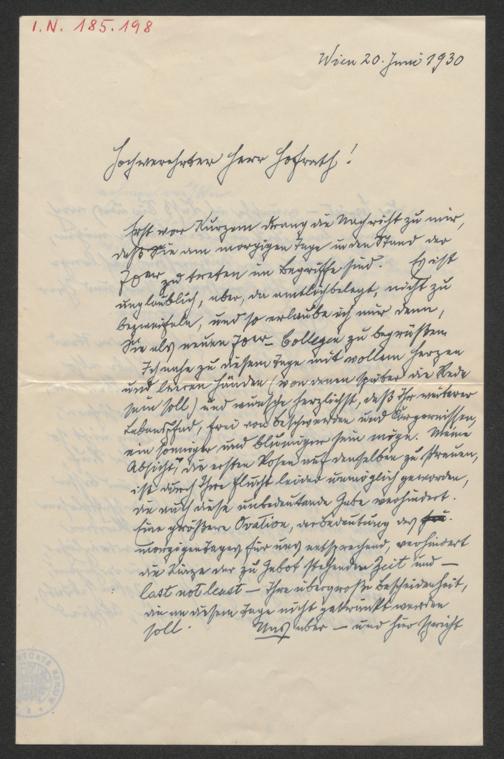 I.N. 185.198
Wien 20. Juni 1930
Hochverehrter Herr Hofrath!
Erst vor Kurzem drang die Nachricht zu mir,
daß Sie am morgigen Tage in den Stand der
70er zu treten im Begriffe sind. Es ist
unglaublich, aber, da amtlich belegt, nicht zu
bezweifeln, und so erlaube ich mir denn,
Sie als neuen 70er-Collegen zu begrüßen.
Ich nahe zu diesem Tage mit vollem Herzen
und leeren Händen (von denen später die Rede
sein soll) und wünsche herzlichst, daß Ihr weiterer
Lebenspfad, frei von Beschwerden und Kümmernissen,
ein sonniger und blumiger sein möge. Meine
Absicht, die ersten Rosen auf denselben zu streuen,
ist durch Ihre Flucht leider unmöglich geworden,
die auch diese unbedeutende Gabe verhindert.
Eine größere Ovation, der Bedeutung des
morgigen Tages für uns entsprechend, verhindert
die Kürze der zu Gebot stehenden Zeit und –
last not least – Ihre übergroße Bescheidenheit,
die an diesem Tage nicht gekränkt werden
soll. Uns aber – und hier spricht